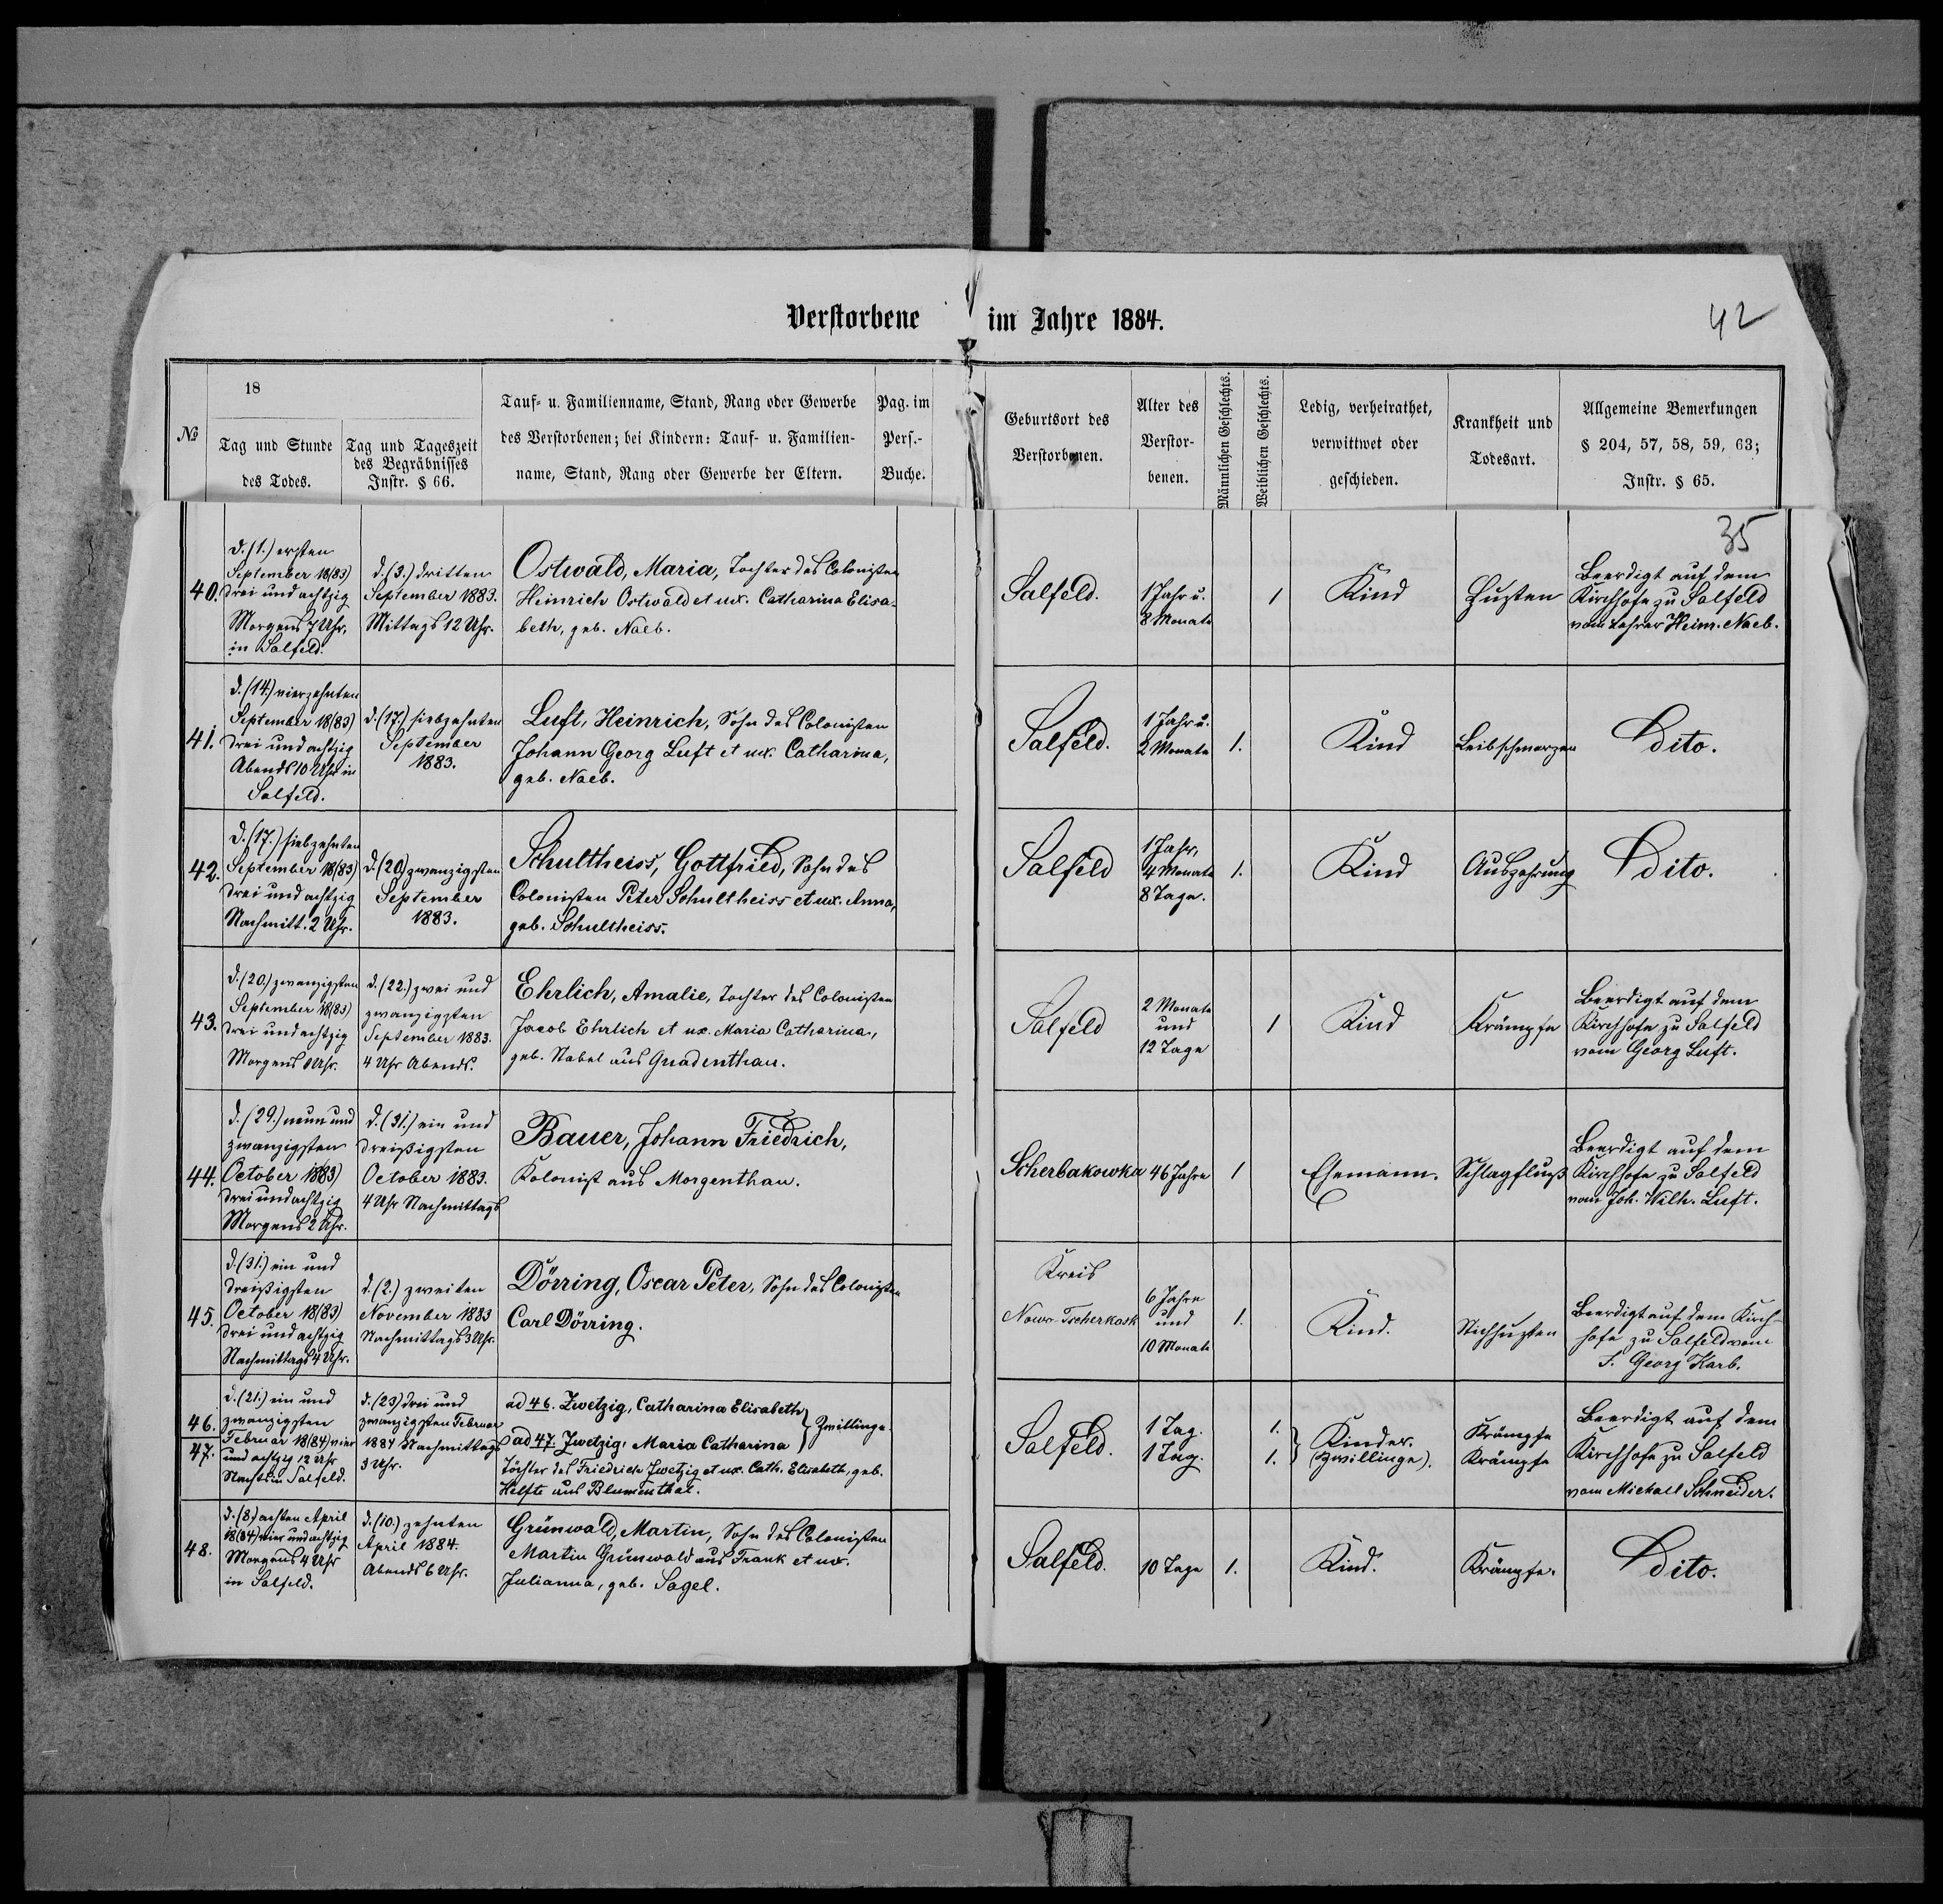 Verstorbene im Jahre 1884.
42
№
18
Tag und Stunde
des Todes.
Tag und Tageszeit
des Begräbnisses
Instr. § 66.
Tauf- u. Familienname, Stand, Rang oder Gewerbe
des Verstorbenen; bei Kindern: Tauf- u. Familien-
name, Stand, Rang oder Gewerbe der Eltern.
Pag. im
Pers.-
Buche.
Geburtsort des
Verstorbenen.
Alter des
Verstor-
benen.
Männlichen Geschlechts.
Weiblichen Geschlechts.
Ledig, verheirathet,
verwittwet oder
geschieden.
Krankheit und
Todesart.
Allgemeine Bemerkungen
§ 204, 57, 58, 59, 63;
Instr. § 65.
35
40.
d. (1.) ersten
September 18(83)
drei und achtzig
Morgens 7 Uhr,
in Salfeld.
d. (3.) dritten
September 1883.
Mittags 12 Uhr.
Ostwald, Maria, Tochter des Colonisten
Heinrich Ostwald et ux. Catharina Elisa-
beth, geb. Naeb.
Salfeld.
1 Jahr u.
8 Monate
1
Kind
Husten
Beerdigt auf dem
Kirchhofe zu Salfeld
vom Lehrer Heinr. Naeb.
41.
d. (14.) vierzehnten
September 18(83)
drei und achtzig
Abends 10 Uhr in
Salfeld.
d. (17.) siebzehnten
September
1883.
Luft, Heinrich, Sohn des Colonisten
Johann Georg Luft et ux. Catharina,
geb. Naeb.
Salfeld.
1 Jahr u.
2 Monate
1.
Kind
Leibschmerzen
Dito.
42.
d. (17.) siebzehnten
September 18(83)
drei und achtzig
Nachmitt. 2 Uhr.
d. (20) zwanzigsten
September
1883.
Schultheiss, Gottfried, Sohn des
Colonisten Peter Schultheiss et ux. Anna,
geb. Schultheiss.
Salfeld
1 Jahr,
4 Monate
8 Tage.
1.
Kind
Auszehrung
Dito.
43.
d. (20.) zwanzigsten
September 18(83)
drei und achtzig
Morgens Uhr.
d. (22.) zwei und
zwanzigsten
September 1883.
4 Uhr Abends.
Ehrlich, Amalie, Tochter des Colonisten
Jacob Ehrlich et ux. Maria Catharina,
geb. Nabel aus Gnadenthau.
Salfeld
2 Monate
und
12 Tage
1
Kind
Krämpfe
Beerdigt auf dem
Kirchhofe zu Salfeld
vom Georg Luft.
44.
d. (29.) neun und
zwanzigsten
October 18(83)
drei und achtzig
Morgens 2 Uhr.
d. (31.) ein und
dreißigsten
October 1883.
4 Uhr Nachmittags
Bauer, Johann Friedrich,
Kolonist aus Morgenthau.
Scherbakowka
46 Jahre
1
Ehemann.
Schlagfluß
Beerdigt auf dem
Kirchhofe zu Salfeld
vom Joh. Wilh. Luft.
45.
d. (31.) ein und
dreißigsten
October 18(83)
drei und achtzig
Nachmittags 4 Uhr.
d. (2.) zweiten
November 1883
Nachmittags 3 Uhr.
Dörring, Oscar Peter, Sohn des Colonisten
Carl Dörring.
Kreis
Nowo-Tscherkask
6 Jahre
und
10 Monate
1.
Kind.
Stichhusten
Beerdigt auf dem Kirch-
hofe zu Salfeld vom
J. Georg Karb.
46.
47.
d. (21.) ein und
zwanzigsten
Februar 18(84) vier
und achtzig 12 Uhr
Nachts in Salfeld.
d. (23) drei und
zwanzigsten Februar
1884 Nachmittags
3 Uhr.
ad 46. Zwetzig, Catharina Elisabeth
ad 47. Zwetzig, Maria Catharina
Zwillinge
Töchter des Friedrich Zwetzig et ux. Cath. Elisabeth, geb.
Helfte aus Blumenthal.
Salfeld.
1 Tag.
1 Tag.
1.
1.
Kinder.
(Zwillinge).
Krämpfe
Krämpfe
Beerdigt auf dem
Kirchhofe zu Salfeld
vom Michael Schneider.
48.
d. (8) achten April
18(84) vier und achtzig
Morgens 4 Uhr
in Salfeld.
d. (10.) zehnten
April 1884.
Abends 6 Uhr.
Grünwald, Martin, Sohn des Colonisten
Martin Grünwald aus Frank et ux.
Julianna, geb. Sagel.
Salfeld.
10 Tage
1.
Kind.
Krämpfe.
Dito.